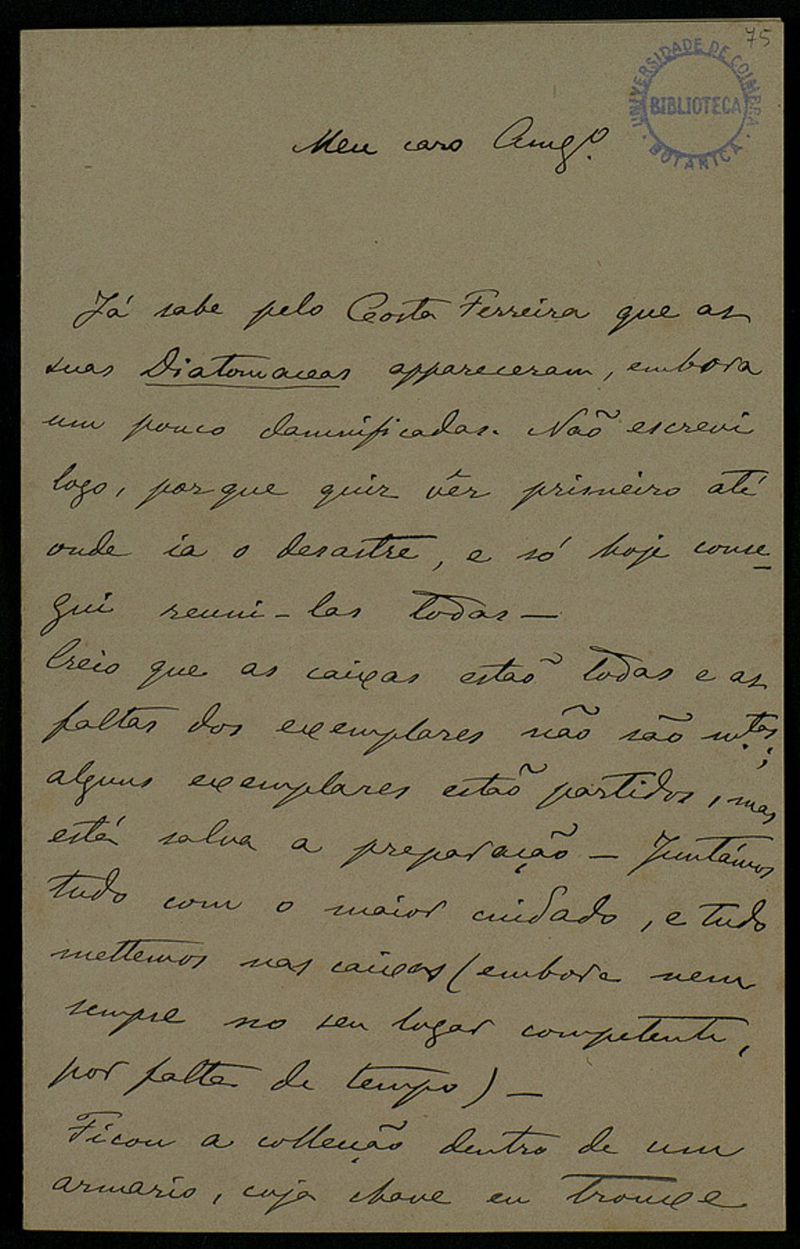 75
UNIVERSIDADE DE COIMBRA
BIBLIOTECA
BOTANICA
Meu caro Amgº.
Já sabe pelo Costa Ferreira que as
suas Diatomaceas appareceram, embora
um pouco damnificadas. Não escrevi
logo, porque quiz vêr primeiro até
onde ia o desastre, e só hoje conse-
gui reuni-las todas —
Creio que as caixas estão todas e as
faltas dos exemplares não são m.tas;
alguns exemplares estão partidos, mas
está salva a preparação — Juntámos
tudo com o maior cuidado, e tudo
mettemos nas caixas (embora nem
sempre no seu logar competente,
por falta de tempo) —
Ficou a collecção dentro de um
armario, cuja chave eu trouxe